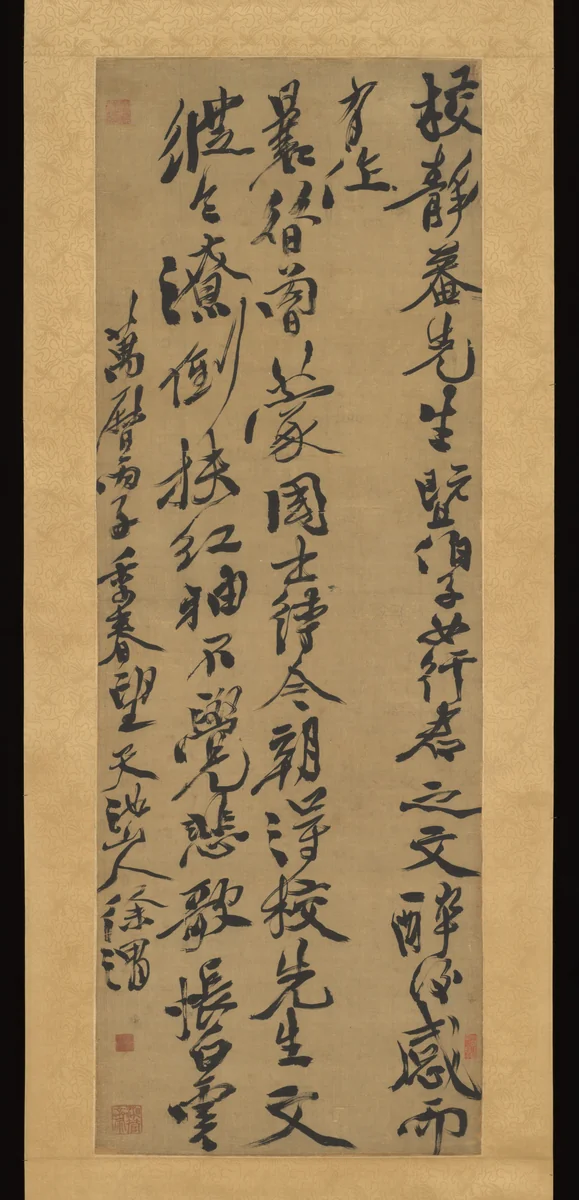 校靜菴先生暨伯子女行君之文醉後感而
有作
曩昔曾蒙國士待今朝得校先生文
縱令潦倒扶紅袖不覺悲歌悵白雲
萬曆丙子季春望天池山人徐渭